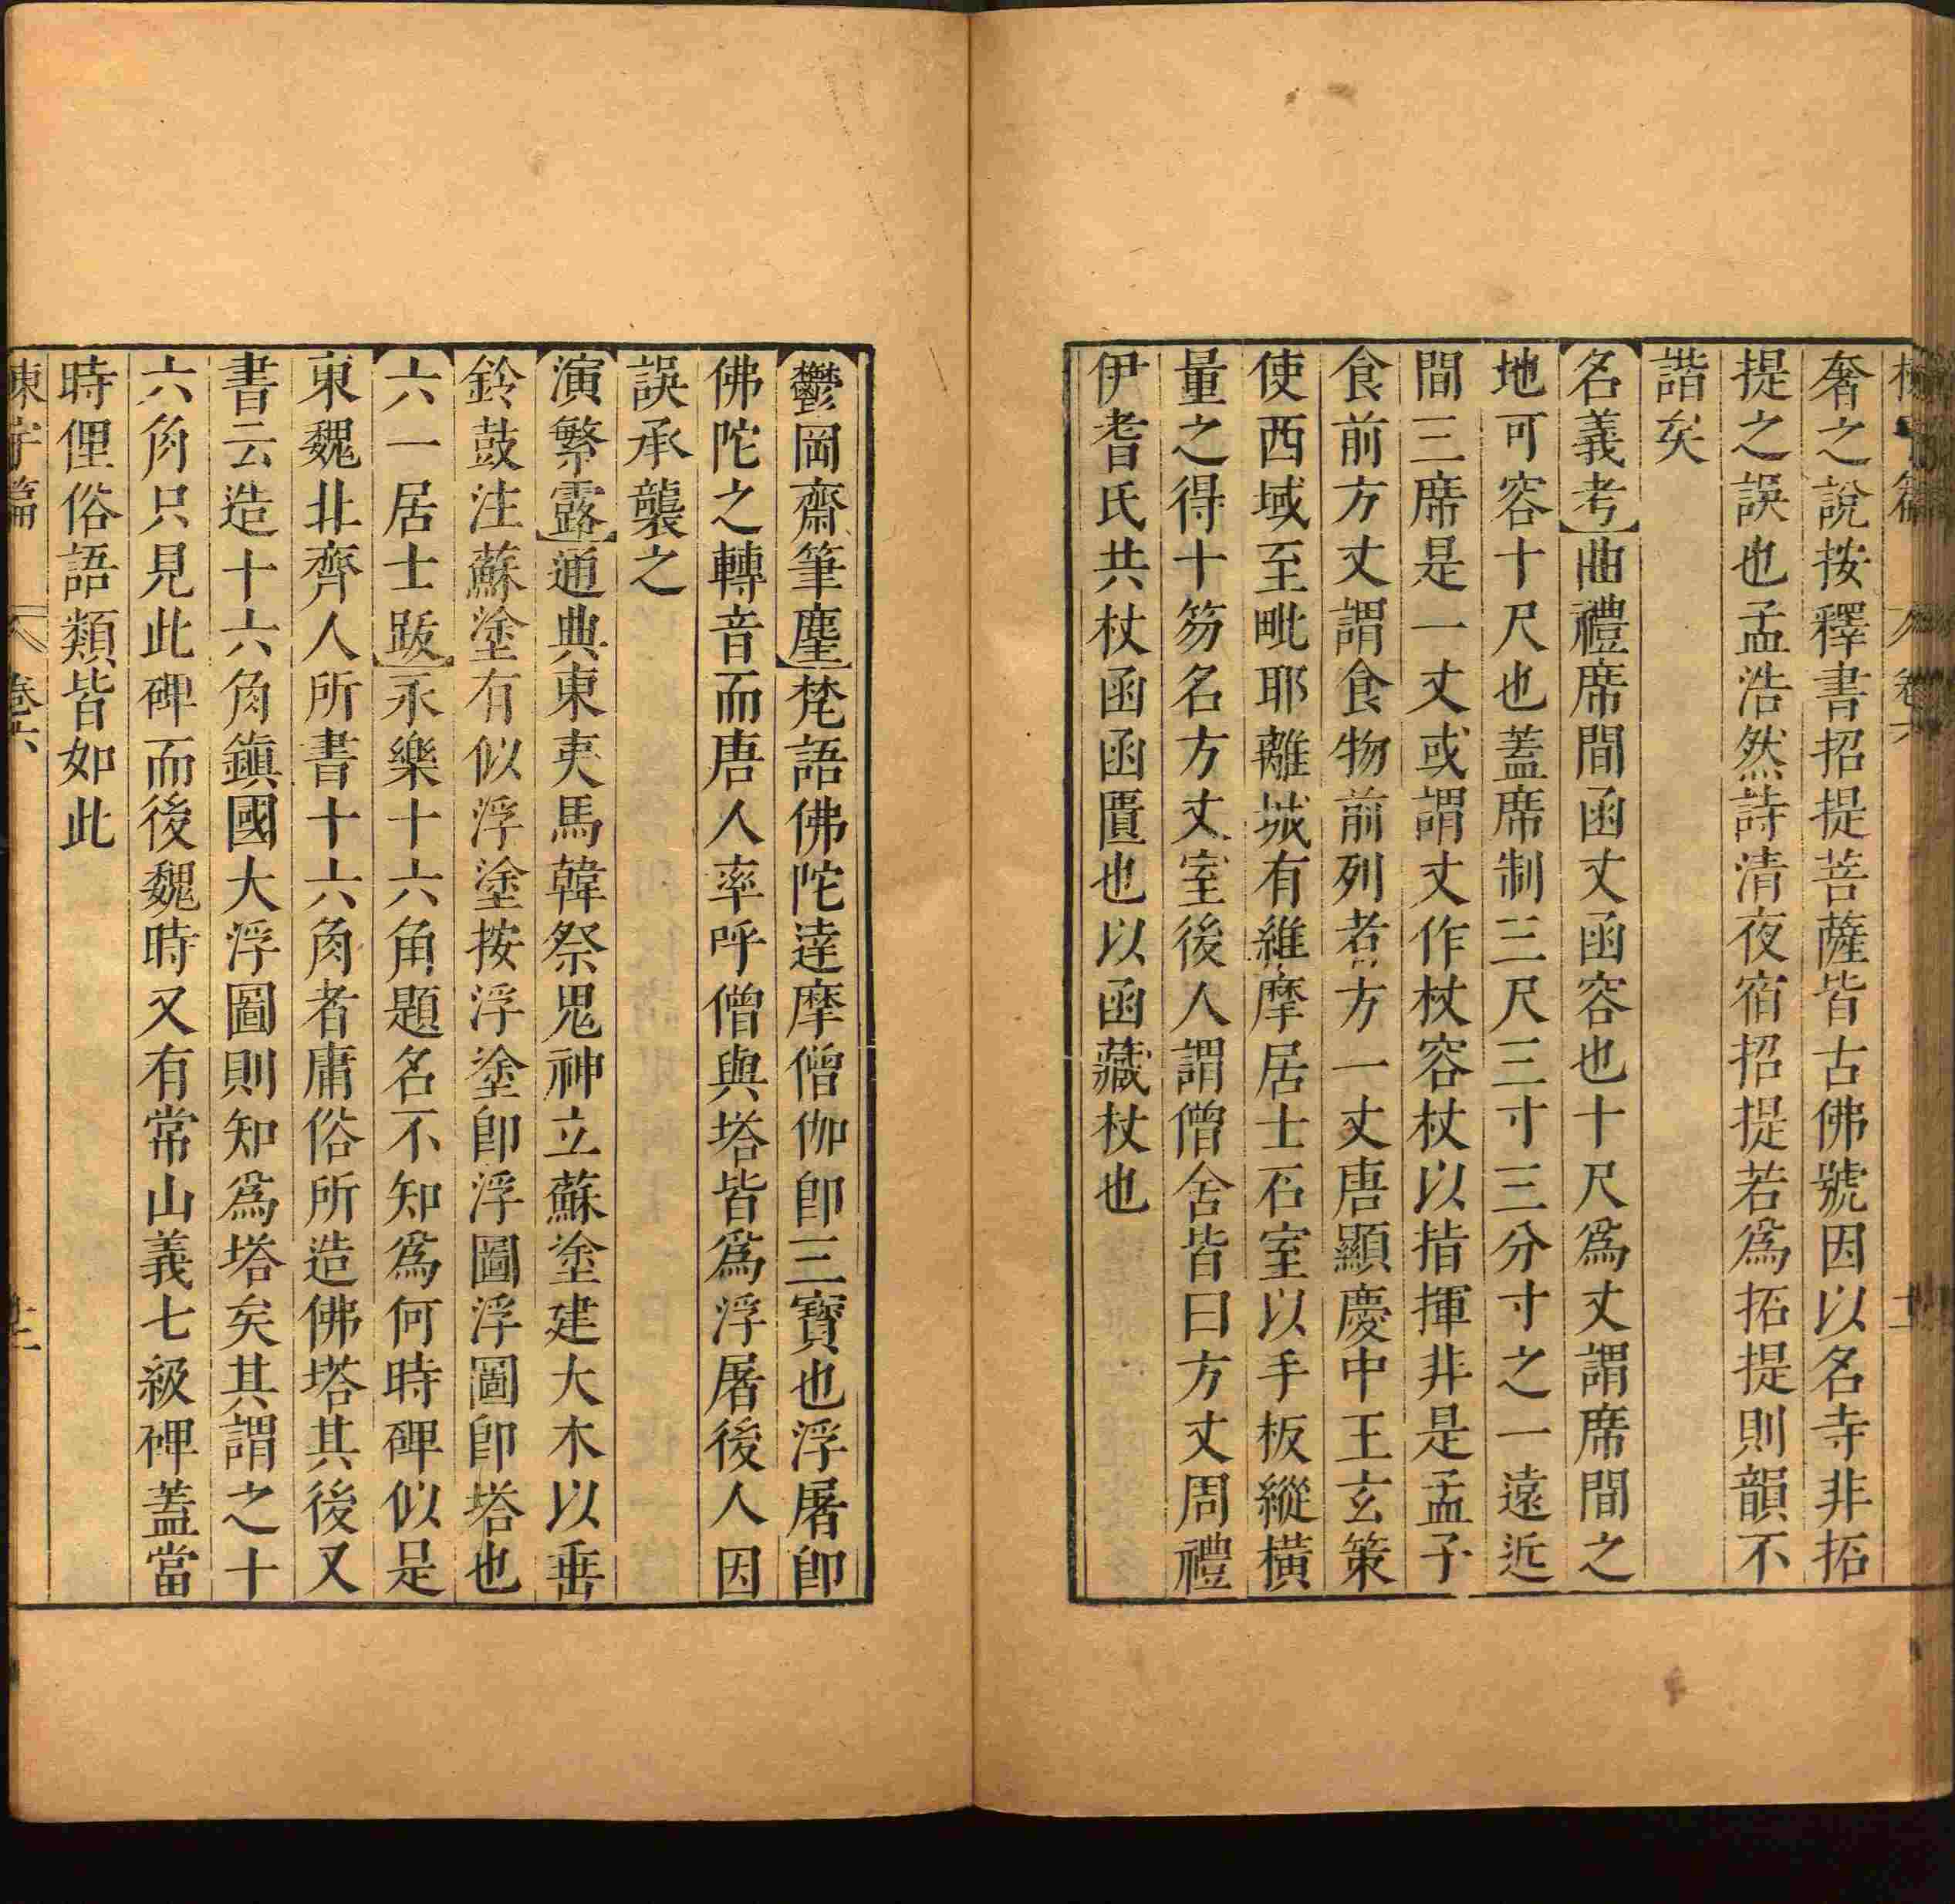 奢之說按釋書招提菩薩皆古佛號因以名寺非拓
提之誤也孟浩然詩清夜宿招提若爲拓提則韻不
諧矣
名義考曲禮席間函丈函容也十尺爲丈謂席間之
地可容十尺也蓋席制三尺三寸三分寸之一遠近
間三席是一丈或謂丈作杖容杖以指揮非是孟子
食前方丈謂食物前列者方一丈唐顯慶中王玄策
使西域至毗耶離城有維摩居士石室以手板縱橫
量之得十笏名方丈室後人謂僧舍皆曰方丈周禮
伊耆氏共杖函函匱也以函藏杖也
鬱岡齋筆麈梵語佛陀達摩僧伽卽三寶也浮屠卽
佛陀之轉音而唐人率呼僧與塔皆爲浮屠後人因
誤承襲之
演繁露通典東夷馬韓祭鬼神立蘇塗建大木以垂
鈴鼓注蘇塗有似浮塗按浮塗卽浮圖浮圖卽塔也
六一居士跋永樂十六角題名不知爲何時碑似是
東魏北齊人所書十六角者庸俗所造佛塔其後又
書云造十六角鎭國大浮圖則知爲塔矣其謂之十
六角只見此碑而後魏時又有常山義七級碑蓋當
時俚俗語類皆如此
卷六